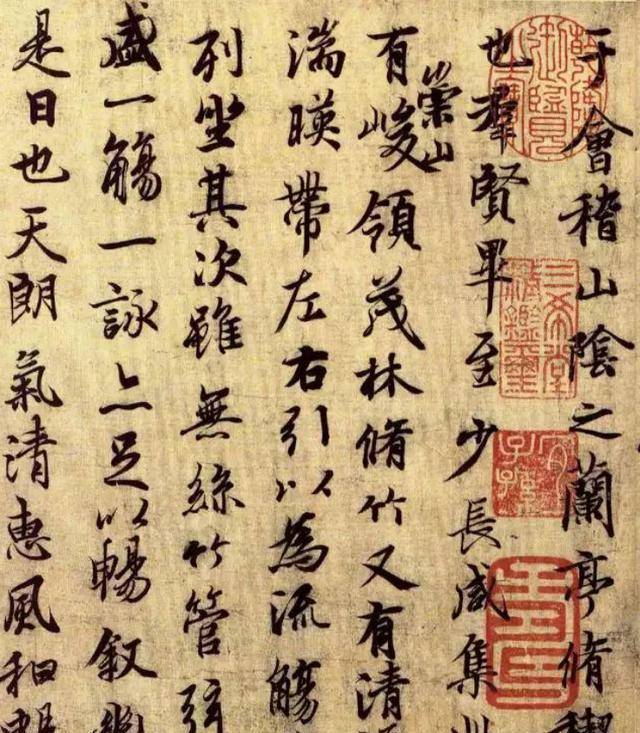 于會稽山陰之蘭亭脩禊
也羣賢畢至少長咸集
有崇山峻領茂林脩竹又有清
湍暎帶左右引以為流觴
列坐其次雖無絲竹管弦
盛一觴一詠亦足以暢敘幽
是日也天朗氣清惠風和暢
三希堂精鑑璽
宜子孫